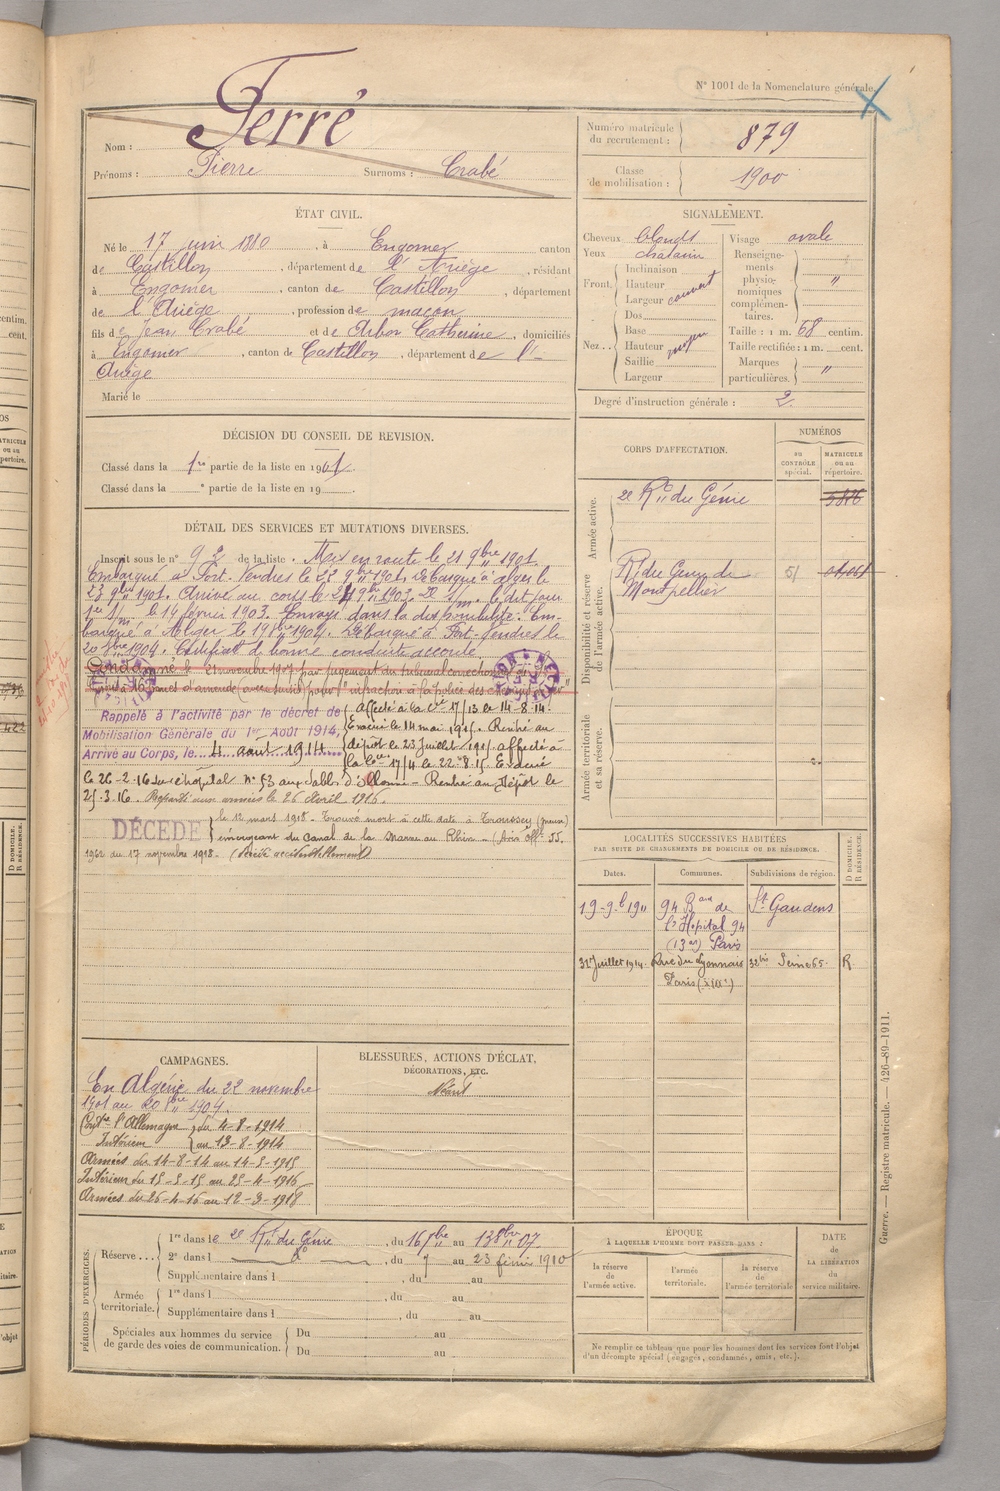 N° 1001 de la Nomenclature générale.
Nom : Ferré
Prénoms : Pierre Surnoms : Crabé
Numéro matricule du recrutement : 879
Classe de mobilisation : 1900
ÉTAT CIVIL.
Né le 17 juin 1880, à Engomer canton
de Castillon, département de l'Ariège, résidant
à Engomer, canton de Castillon, département
de l'Ariège, profession de maçon
fils de Jean Crabé et de Arbon Catherine, domiciliés
à Engomer, canton de Castillon, département de l'
Ariège
Marié le
SIGNALEMENT.
Cheveux blonds
Yeux chatains
Front. Inclinaison
Hauteur
Largeur couvert
Nez... Dos
Base
Hauteur moyen
Saillie
Largeur
Visage ovale
Renseignements physionomiques complémentaires. "
Taille : 1 m. 68 centim.
Taille rectifiée : 1 m. cent.
Marques particulières. "
Degré d'instruction générale : 2
DÉCISION DU CONSEIL DE REVISION.
Classé dans la 1re partie de la liste en 1901
Classé dans la e partie de la liste en 19
DÉTAIL DES SERVICES ET MUTATIONS DIVERSES.
Inscrit sous le n° 92 de la liste. Mis en route le 21 9bre 1901.
Embarqué à Port-Vendres le 22 9bre 1901. Débarqué à Alger le
23 9bre 1901. Arrivé au corps le 24 9bre 1901. 2e S/m. le dit jour
1er S/m le 14 février 1903. Envoyé dans la disponibilité. Em-
barqué à Alger le 19 1904. Débarqué à Port-Vendres le
20 1904. Certificat de bonne conduite accordé.
Condamné le 21 novembre 1907 par jugement du tribunal correctionnel
à 16 francs d'amende (avec sursis) pour "infraction à la police des chemins de fer"
Rappelé à l'activité par le décret de
Mobilisation Générale du 1er Août 1914,
Arrivé au Corps, le 4 août 1914
Affecté à la Cie 17/13 le 14-8-14.
Evacué le 14 mai 1915. Rentré au
dépôt le 23 juillet 1915 affecté à
la Cie 17/4 le 22-8-15. Evacué
le 26-2-16 sur l'hôpital n° 53 aux Sables d'Olonne - Rentré au Dépôt le
25-3-16. Reparti aux armées le 26 Avril 1916.
DÉCÉDÉ le 12 mars 1918 - Trouvé mort à cette date à Troussey (meuse)
émergeant du Canal de la Marne au Rhin - (Avis Off. 55.
1962 du 17 novembre 1918. (décédé accidentellement)
CORPS D'AFFECTATION.
NUMÉROS
AU CONTRÔLE spécial.
MATRICULE ou au répertoire.
Armée active.
2e Rt du Génie
Disponibilité et réserve de l'armée active.
Rt du Génie de
Montpellier
Armée territoriale et sa réserve.
LOCALITÉS SUCCESSIVES HABITÉES
PAR SUITE DE CHANGEMENTS DE DOMICILE OU DE RÉSIDENCE.
Dates. Communes. Subdivisions de région. D DOMICILE. R RÉSIDENCE.
94 Bard de St Gaudens
l'Hôpital 94
(13e) Paris
31 Juillet 1914. Rue du Lyonnais Seine 65 R.
Paris (XIIIe)
CAMPAGNES.
En Algérie du 22 novembre
1901 au 20 1904.
Contre l'Allemagne du 4-8-1914
Intérieur au 13-8-1914
Armées du 14-8-14 au 14-5-1915
Intérieur du 15-5-15 au 25-4-1916
Armées du 26-4-16 au 12-3-1918
BLESSURES, ACTIONS D'ÉCLAT, DÉCORATIONS, ETC.
Néant
PÉRIODES D'EXERCICES.
Réserve... 1re dans le 2e Rt du Génie, du 16 au 13 07.
2e dans l d°, du 7 au 23 février 1910
Supplémentaire dans l, du au
Armée territoriale. 1re dans l, du au
Supplémentaire dans l, du au
Spéciales aux hommes du service de garde des voies de communication. Du au
Du au
ÉPOQUE
À LAQUELLE L'HOMME DOIT PASSER DANS :
la réserve de l'armée active.
l'armée territoriale.
la réserve de l'armée territoriale
DATE de LA LIBÉRATION du service militaire.
Ne remplir ce tableau que pour les hommes dont les services font l'objet
d'un décompte spécial (engagés, condamnés, omis, etc.).
Guerre. — Registre matricule. — 426-89-1911.